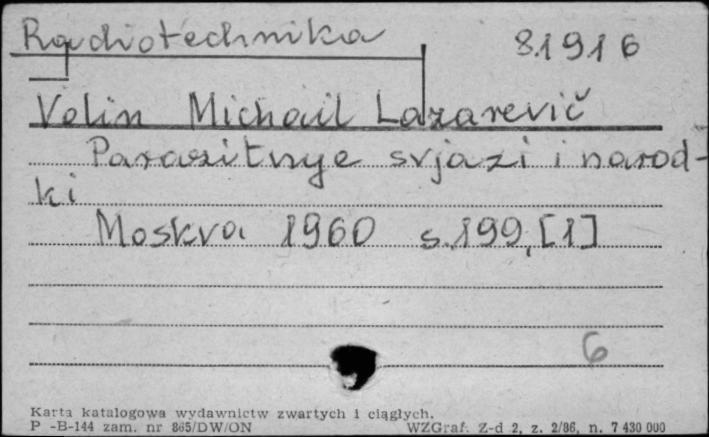 Radiotechnika 81916
Volin Michail Lazarevič
Parazitnye svjazi i navod-
ki
Moskva 1960 s.199,[1]
6
Karta katalogowa wydawnictw zwartych i ciągłych.
P -B-144 zam. nr 865/DW/ON WZGraf. Z-d 2, z. 2/86, n. 7 430 000